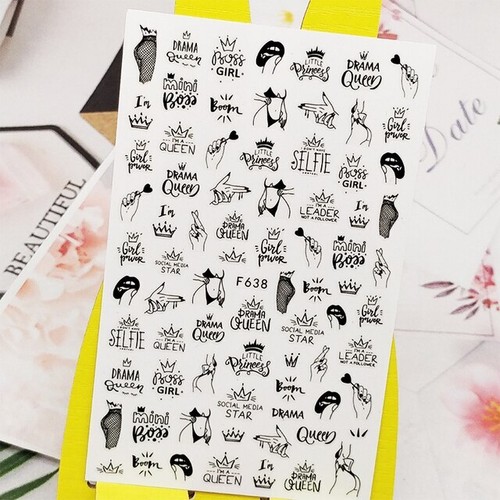 DRAMA
Queen
Boss
GIRL
LITTLE
Princess
DRAMA
Queen
I'm
mini
Boss
Boom
Girl
power
Girl
power
I'M A
QUEEN
LITTLE
Princess
SELFIE
Boss
GIRL
DRAMA
Queen
I'm
DRAMA
QUEEN
I'M A
LEADER
NOT A FOLLOWER
I'm
Girl
power
SOCIAL MEDIA
STAR
Girl
power
mini
Boss
F638
Boom
DRAMA
QUEEN
Girl
power
SELFIE
I'M A
QUEEN
DRAMA
Queen
SOCIAL MEDIA
STAR
I'M A
LEADER
NOT A FOLLOWER
LITTLE
Princess
DRAMA
Queen
Boss
GIRL
Boom
mini
Boss
SOCIAL MEDIA
STAR
DRAMA
Queen
Boom
I'M A
QUEEN
I'm
DRAMA
QUEEN
BEAUTIFUL
Date